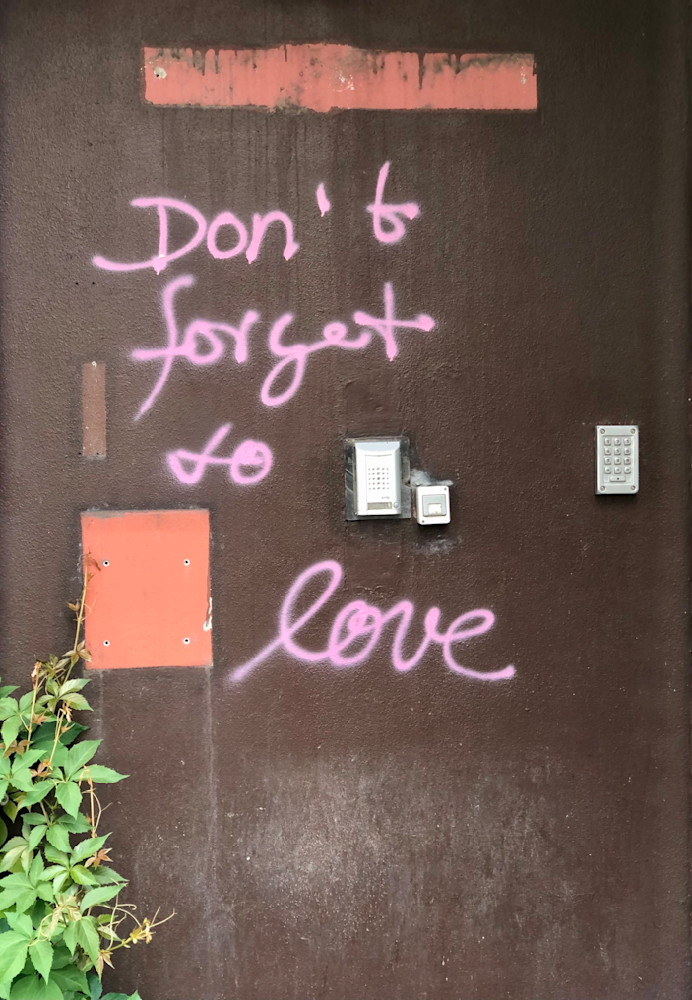 Don't
forget
to
love